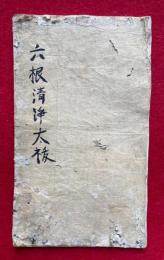 六根清浄太祓